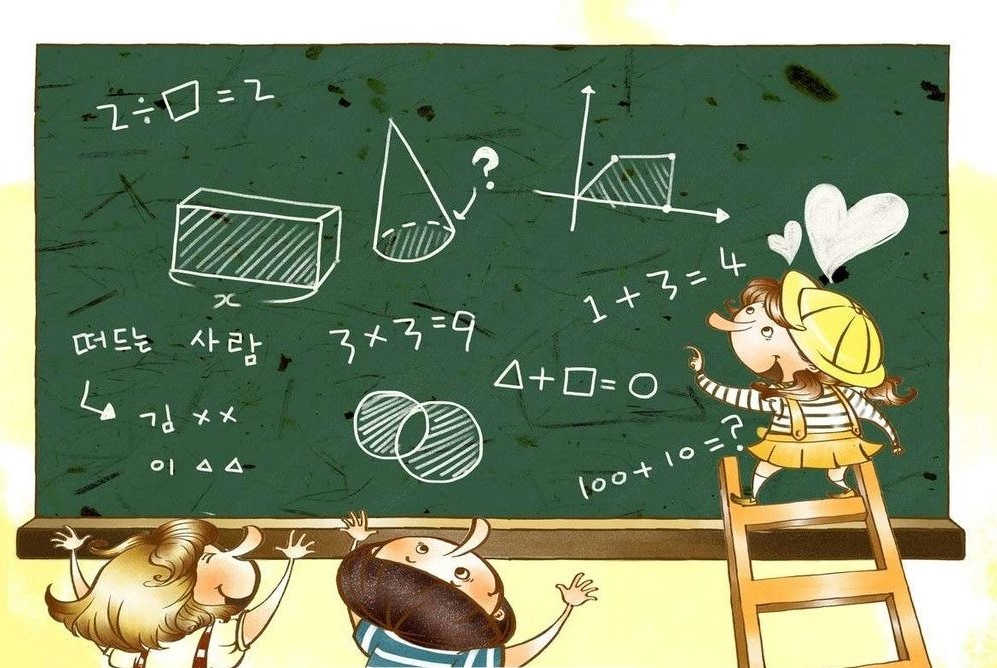 2÷□=2
?
x
1+3=4
떠드는 사람
3×3=9
△+□=○
김 ××
이 △△
100+10=?